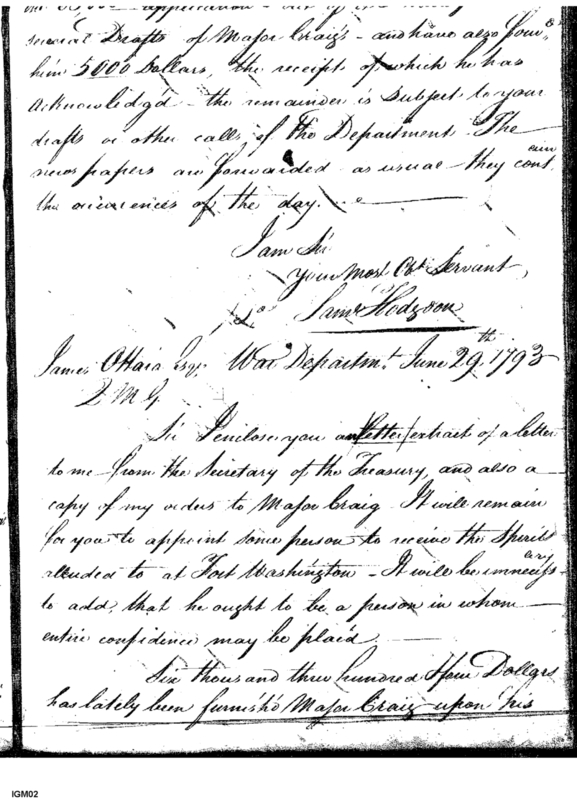 several Drafts of Major Craig's - and have also
him 5000 Dollars, the receipt of which he has
acknowledg'd - the remainder is subject to your
drafts or other calls of the Department. The
news papers are forwarded as usual - they contain
the occurrences of the day.
I am Sir
your Most Obt Servant,
Saml Hodgdon
James OHara Esqr War Departmt June 29th 1793
2 M G
Sir I enclose you an letter extract of a letter
to me from the Secretary of the Treasury, and also a
copy of my orders to Major Craig. It will remain
for you to appoint some person to receive the Spirits
alluded to at Fort Washington - It will be unnecessary
to add, that he ought to be a person in whom
entire confidence may be plaid
Six thous and three hundred Dollars
has lately been furnish'd Major Craig upon his
IGM02